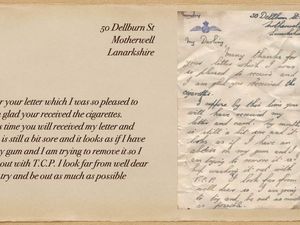 50 Dellburn St
Motherwell
Lanarkshire
r your letter which I was so pleased to
glad your received the cigarettes.
s time you will received my letter and
is still a bit sore and it looks as if I have
y gum and I am trying to remove it so I
out with T.C.P. I look far from well dear
try and be out as much as possible
50 Dellburn St
Motherwell
Lanarkshire
My Darling
Many thanks for
your letter which I was
so pleased to received and
I am glad you received the
cigarettes.
by this time you
will have received my
letter and
is still a bit sore and it
looks as if I have an
in my gum and I
am trying to remove it
so I out with
T.C.P. I look far from
well dear so I am going
to try and be out as much
as possible